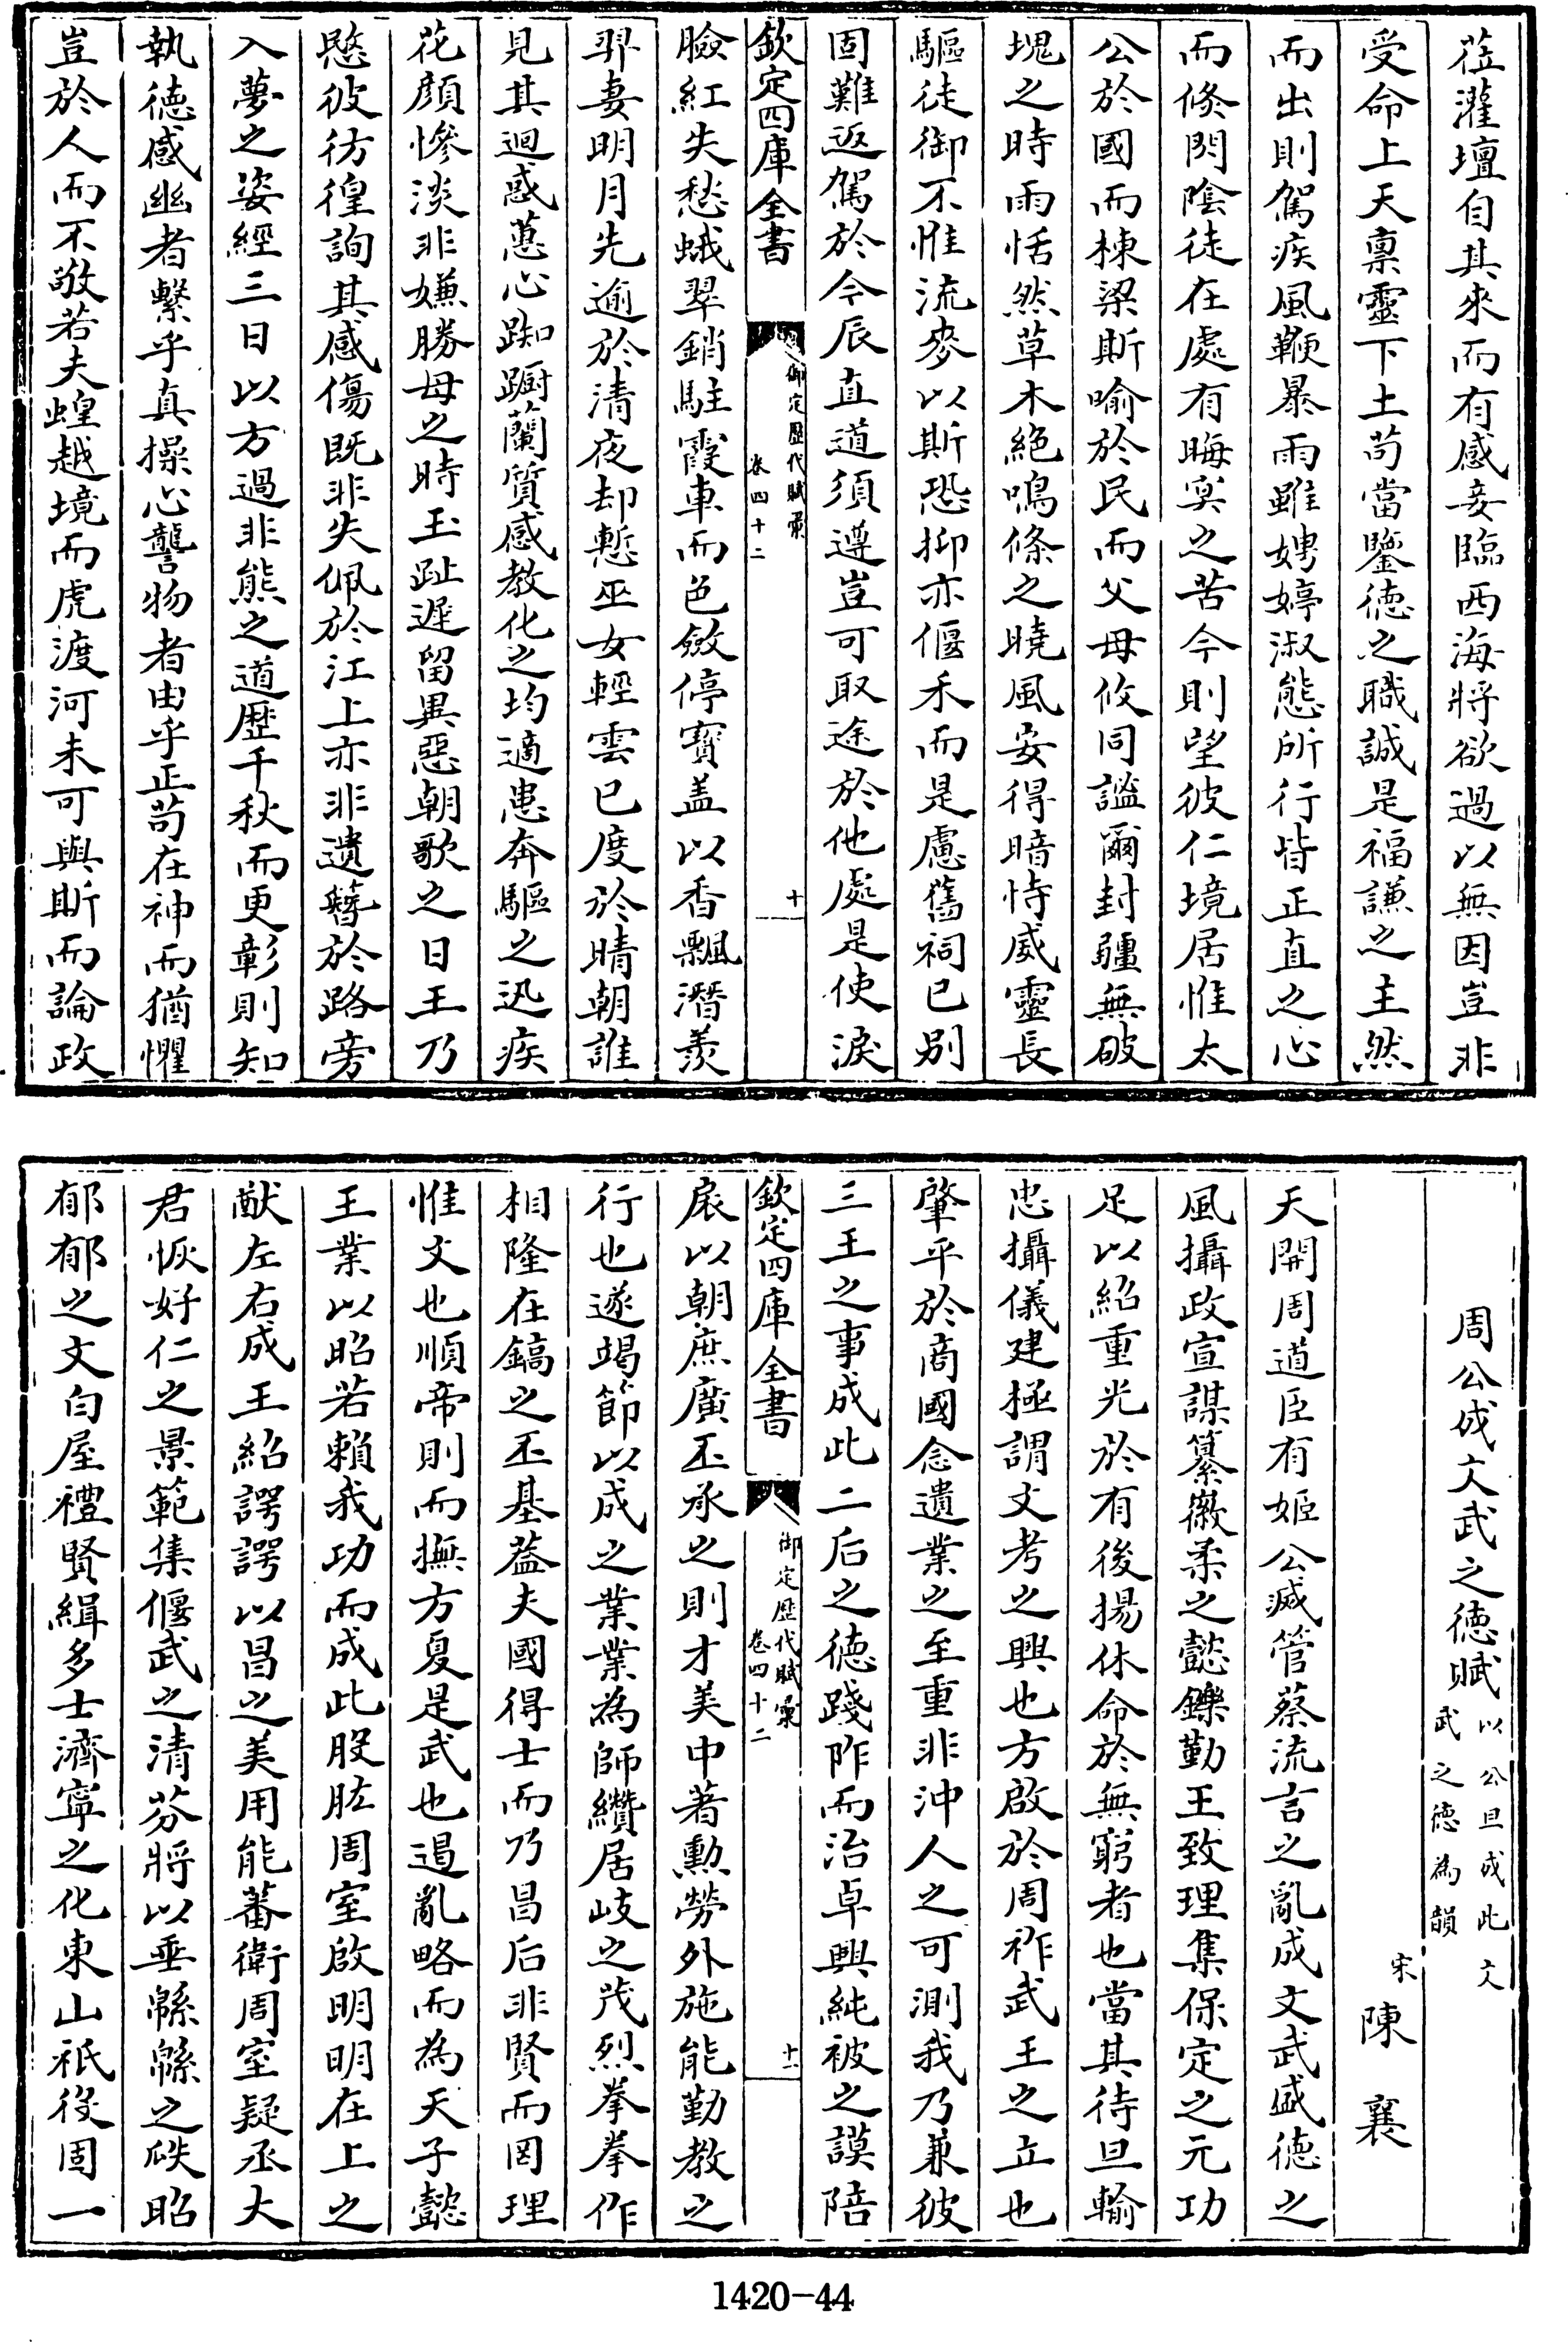 莅灌壇自其來而有感妾臨西海將欲過以無因豈非
受命上天稟靈下土苟當鑒德之職誠是福謙之主然
而出則駕疾風鞭暴雨雖娉婷淑態所行皆正直之心
而倏閃陰徒在處有晦㝠之苦今則望彼仁境居惟太
公於國而棟梁斯喻於民而父母攸同謐爾封疆無破
塊之時雨恬然草木絶鳴條之曉風安得暗恃威靈長
驅徒御不惟流麥以斯恐抑亦偃禾而是慮舊祠已别
固難返駕於今辰直道須遵豈可取途於他處是使淚
欽定四庫全書
御定歷代賦彙
卷四十二
十
臉紅失愁蛾翠銷駐霞車而色斂停寳盖以香飄潛羨
羿妻明月先逾於清夜却慙巫女輕雲已度於晴朝誰
見其迴惑蕙心踟躕蘭質感教化之均適患奔驅之迅疾
花顔慘淡非嫌勝母之時玉趾遲留異惡朝歌之日王乃
愍彼彷徨詢其感傷既非失佩於江上亦非遺簪於路旁
入夢之姿經三日以方過非熊之道歴千秋而更彰則知
執德感幽者繫乎真操心讋物者由乎正苟在神而猶懼
豈於人而不敬若夫蝗越境而虎渡河未可與斯而論政
周公成文武之德賦以公旦成此文
武之德為韻
宋陳襄
天開周道臣有姬公滅管蔡流言之亂成文武盛德之
風攝政宣謀纂徽柔之懿鑠勤王致理集保定之元功
足以紹重光於有後揚休命於無窮者也當其待旦輸
忠攝儀建極謂文考之興也方啟於周祚武王之立也
肇平於商國念遺業之至重非沖人之可測我乃兼彼
三王之事成此二后之德踐阼而治卓興純被之謨陪
欽定四庫全書
御定歷代賦彙
卷四十二
十一
扆以朝庶廣丕承之則才美中著勳勞外施能勤教之
行也遂竭節以成之業業為師纘居岐之茂烈拳拳作
相隆在鎬之丕基葢夫國得士而乃昌后非賢而罔理
惟文也順帝則而撫方夏是武也遏亂略而為天子懿
王業以昭若賴我功而成此股肱周室啟明明在上之
猷左右成王紹諤諤以昌之美用能蕃衛周室疑丞大
君恢好仁之景範集偃武之清芬將以垂緜緜之瓞昭
郁郁之文白屋禮賢緝多士濟寧之化東山祇役固一
1420-44